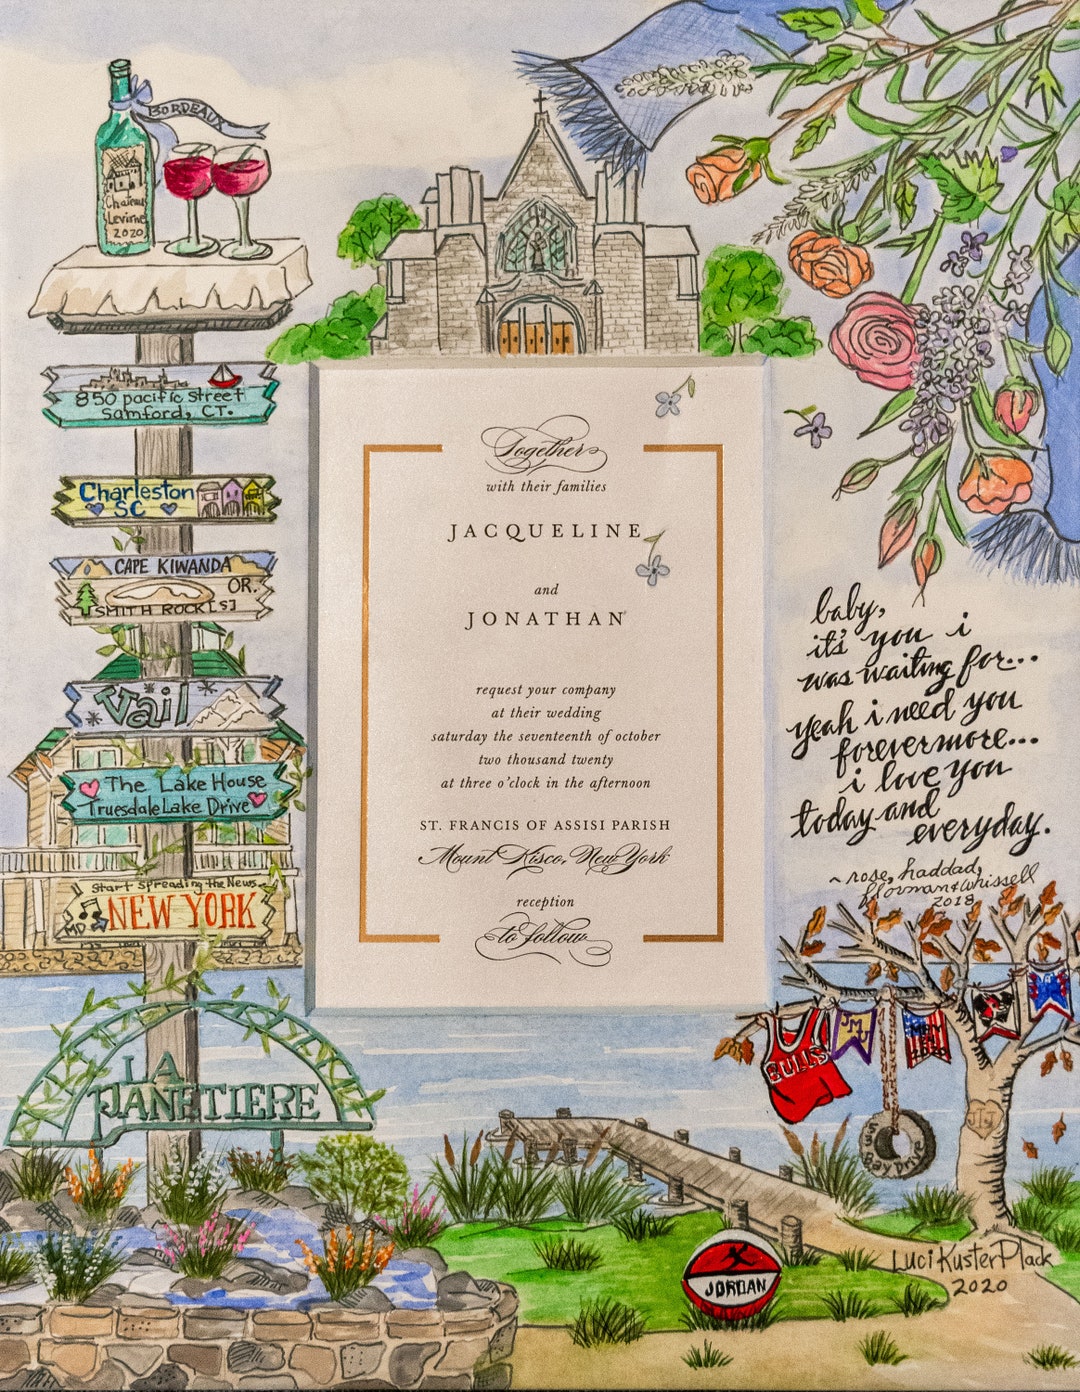 BORDEAUX
Chateau
Levirne
2020
850 pacific street
Samford, CT.
Charleston
SC
CAPE KIWANDA
OR.
SMITH ROCK [S]
Vail
The Lake House
Truesdale Lake Drive
Start spreading the News
MD
NEW YORK
LA
PANETIERE
Together
with their families
JACQUELINE
and
JONATHAN
request your company
at their wedding
saturday the seventeenth of october
two thousand twenty
at three o'clock in the afternoon
ST. FRANCIS OF ASSISI PARISH
Mount Kisco, New York
reception
to follow
baby,
it's you i
was waiting for...
yeah i need you
forevermore...
i love you
today and
everyday.
~ rose, haddad,
florman & whissell
2018
BULLS
JMJ
MAY
2020
J J
Bay Drive
JORDAN
Luci Kuster Plack
2020